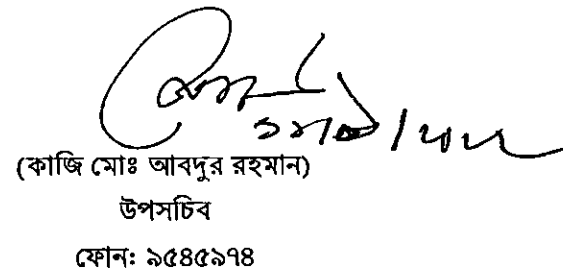 (কাজি মোঃ আবদুর রহমান)
উপসচিব
ফোন: ৯৫৪৫৯৭৪